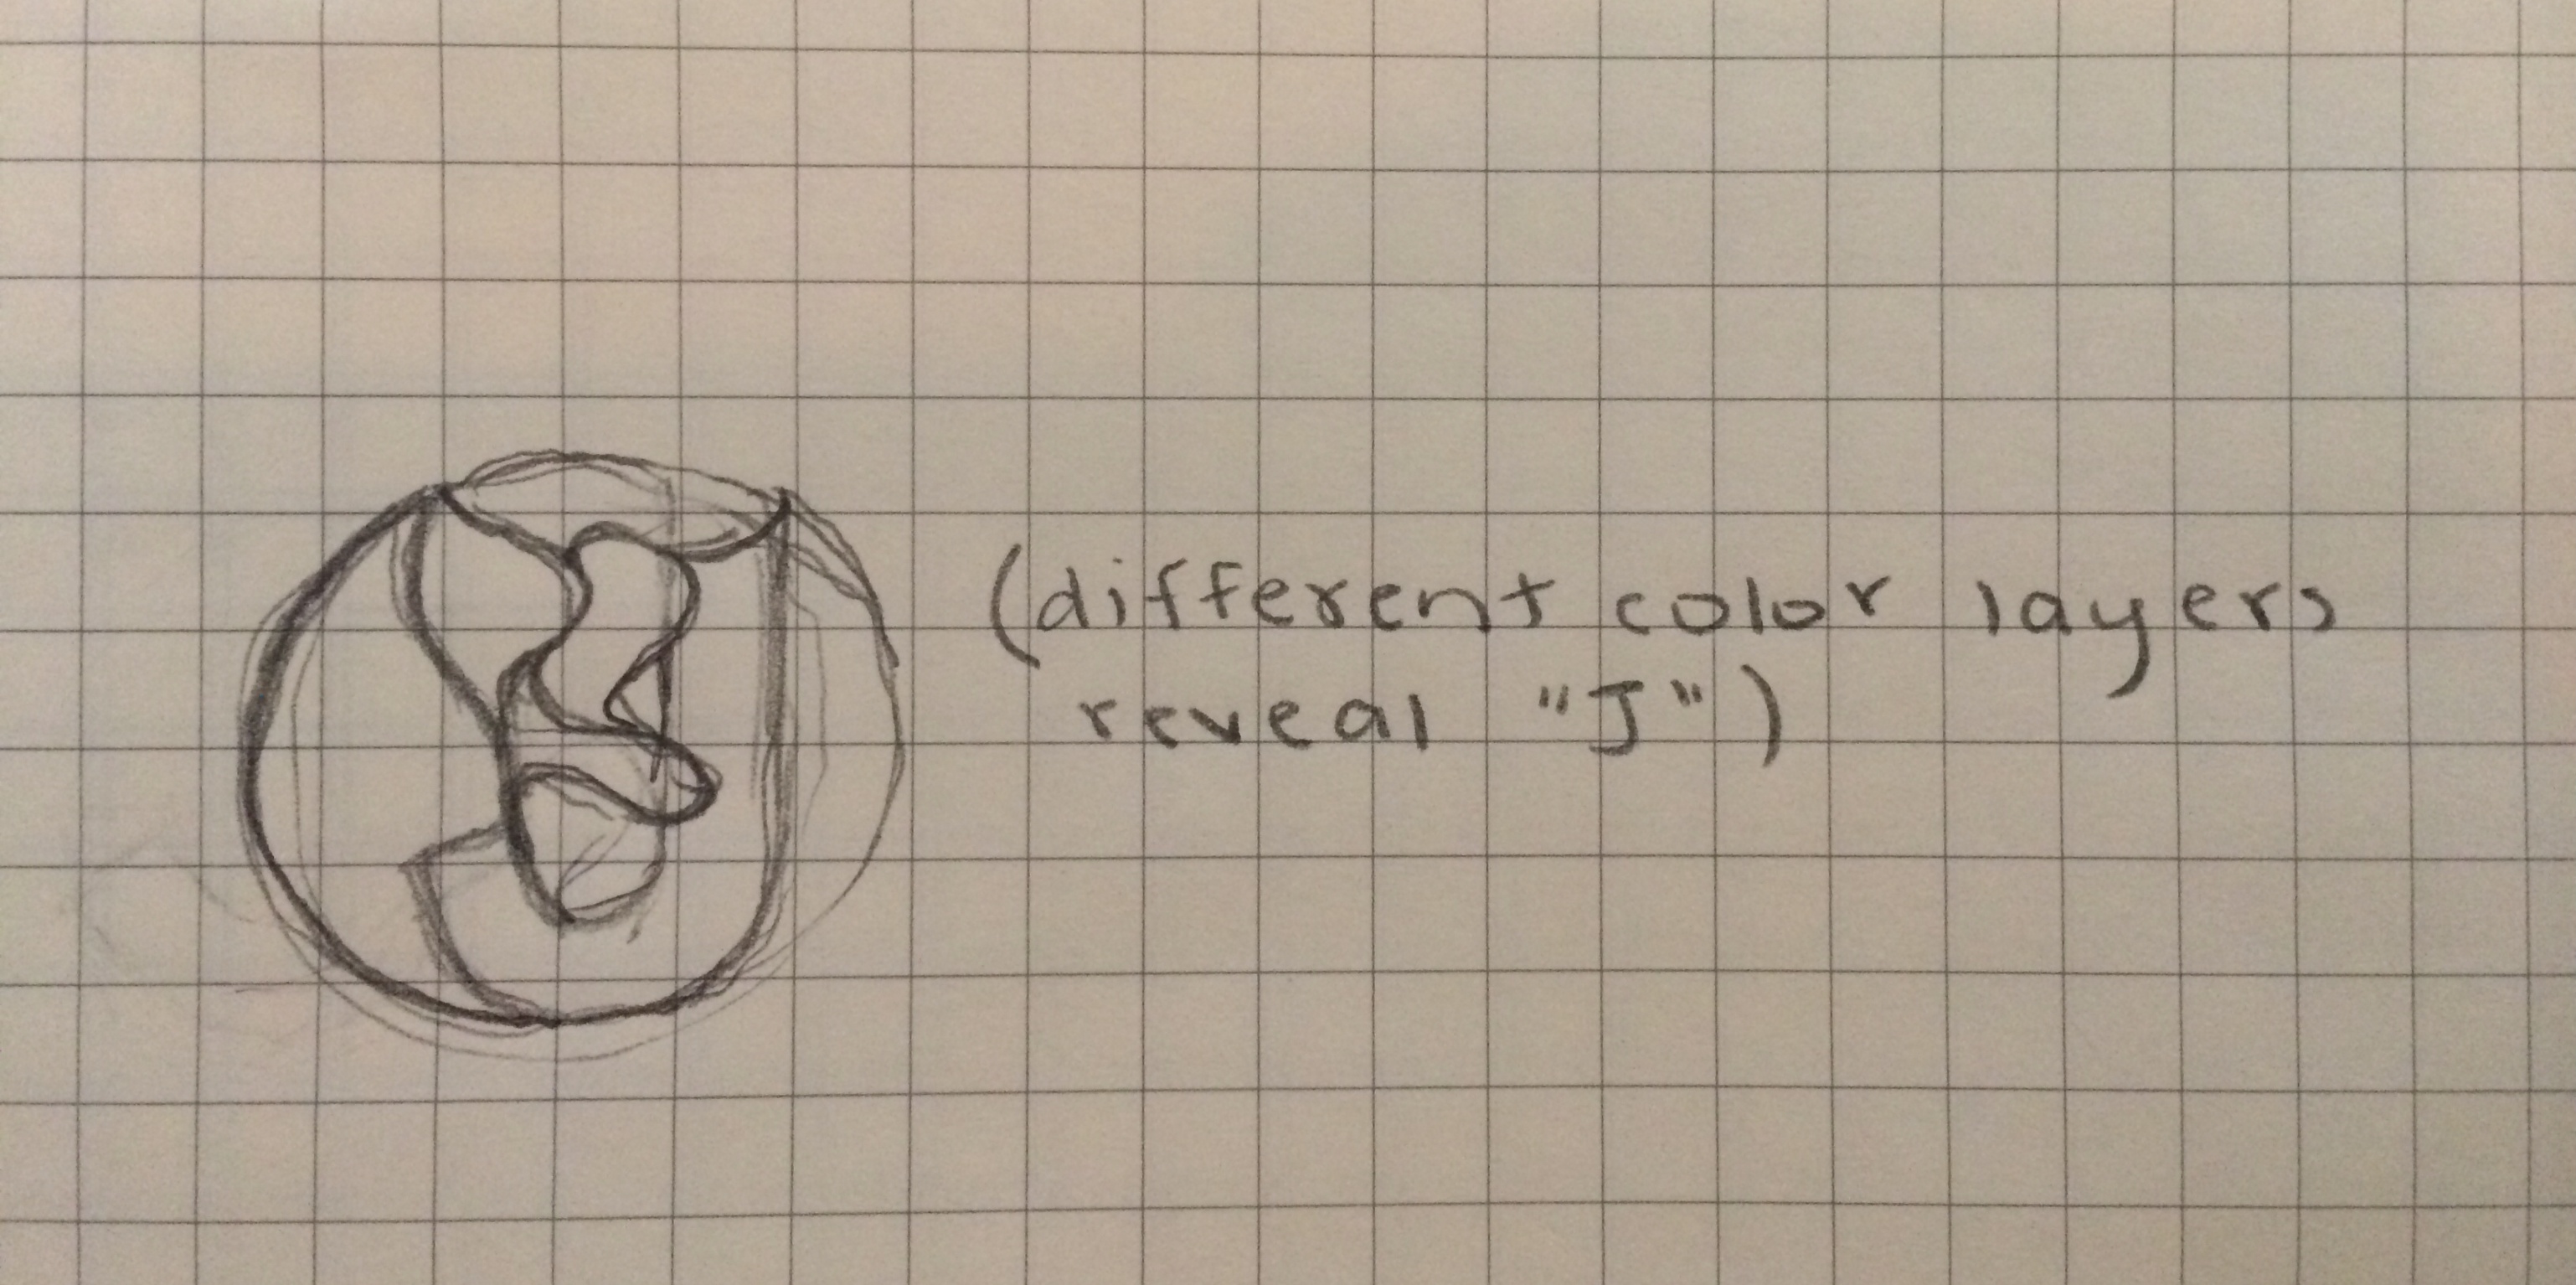 (different color layers
reveal "J")